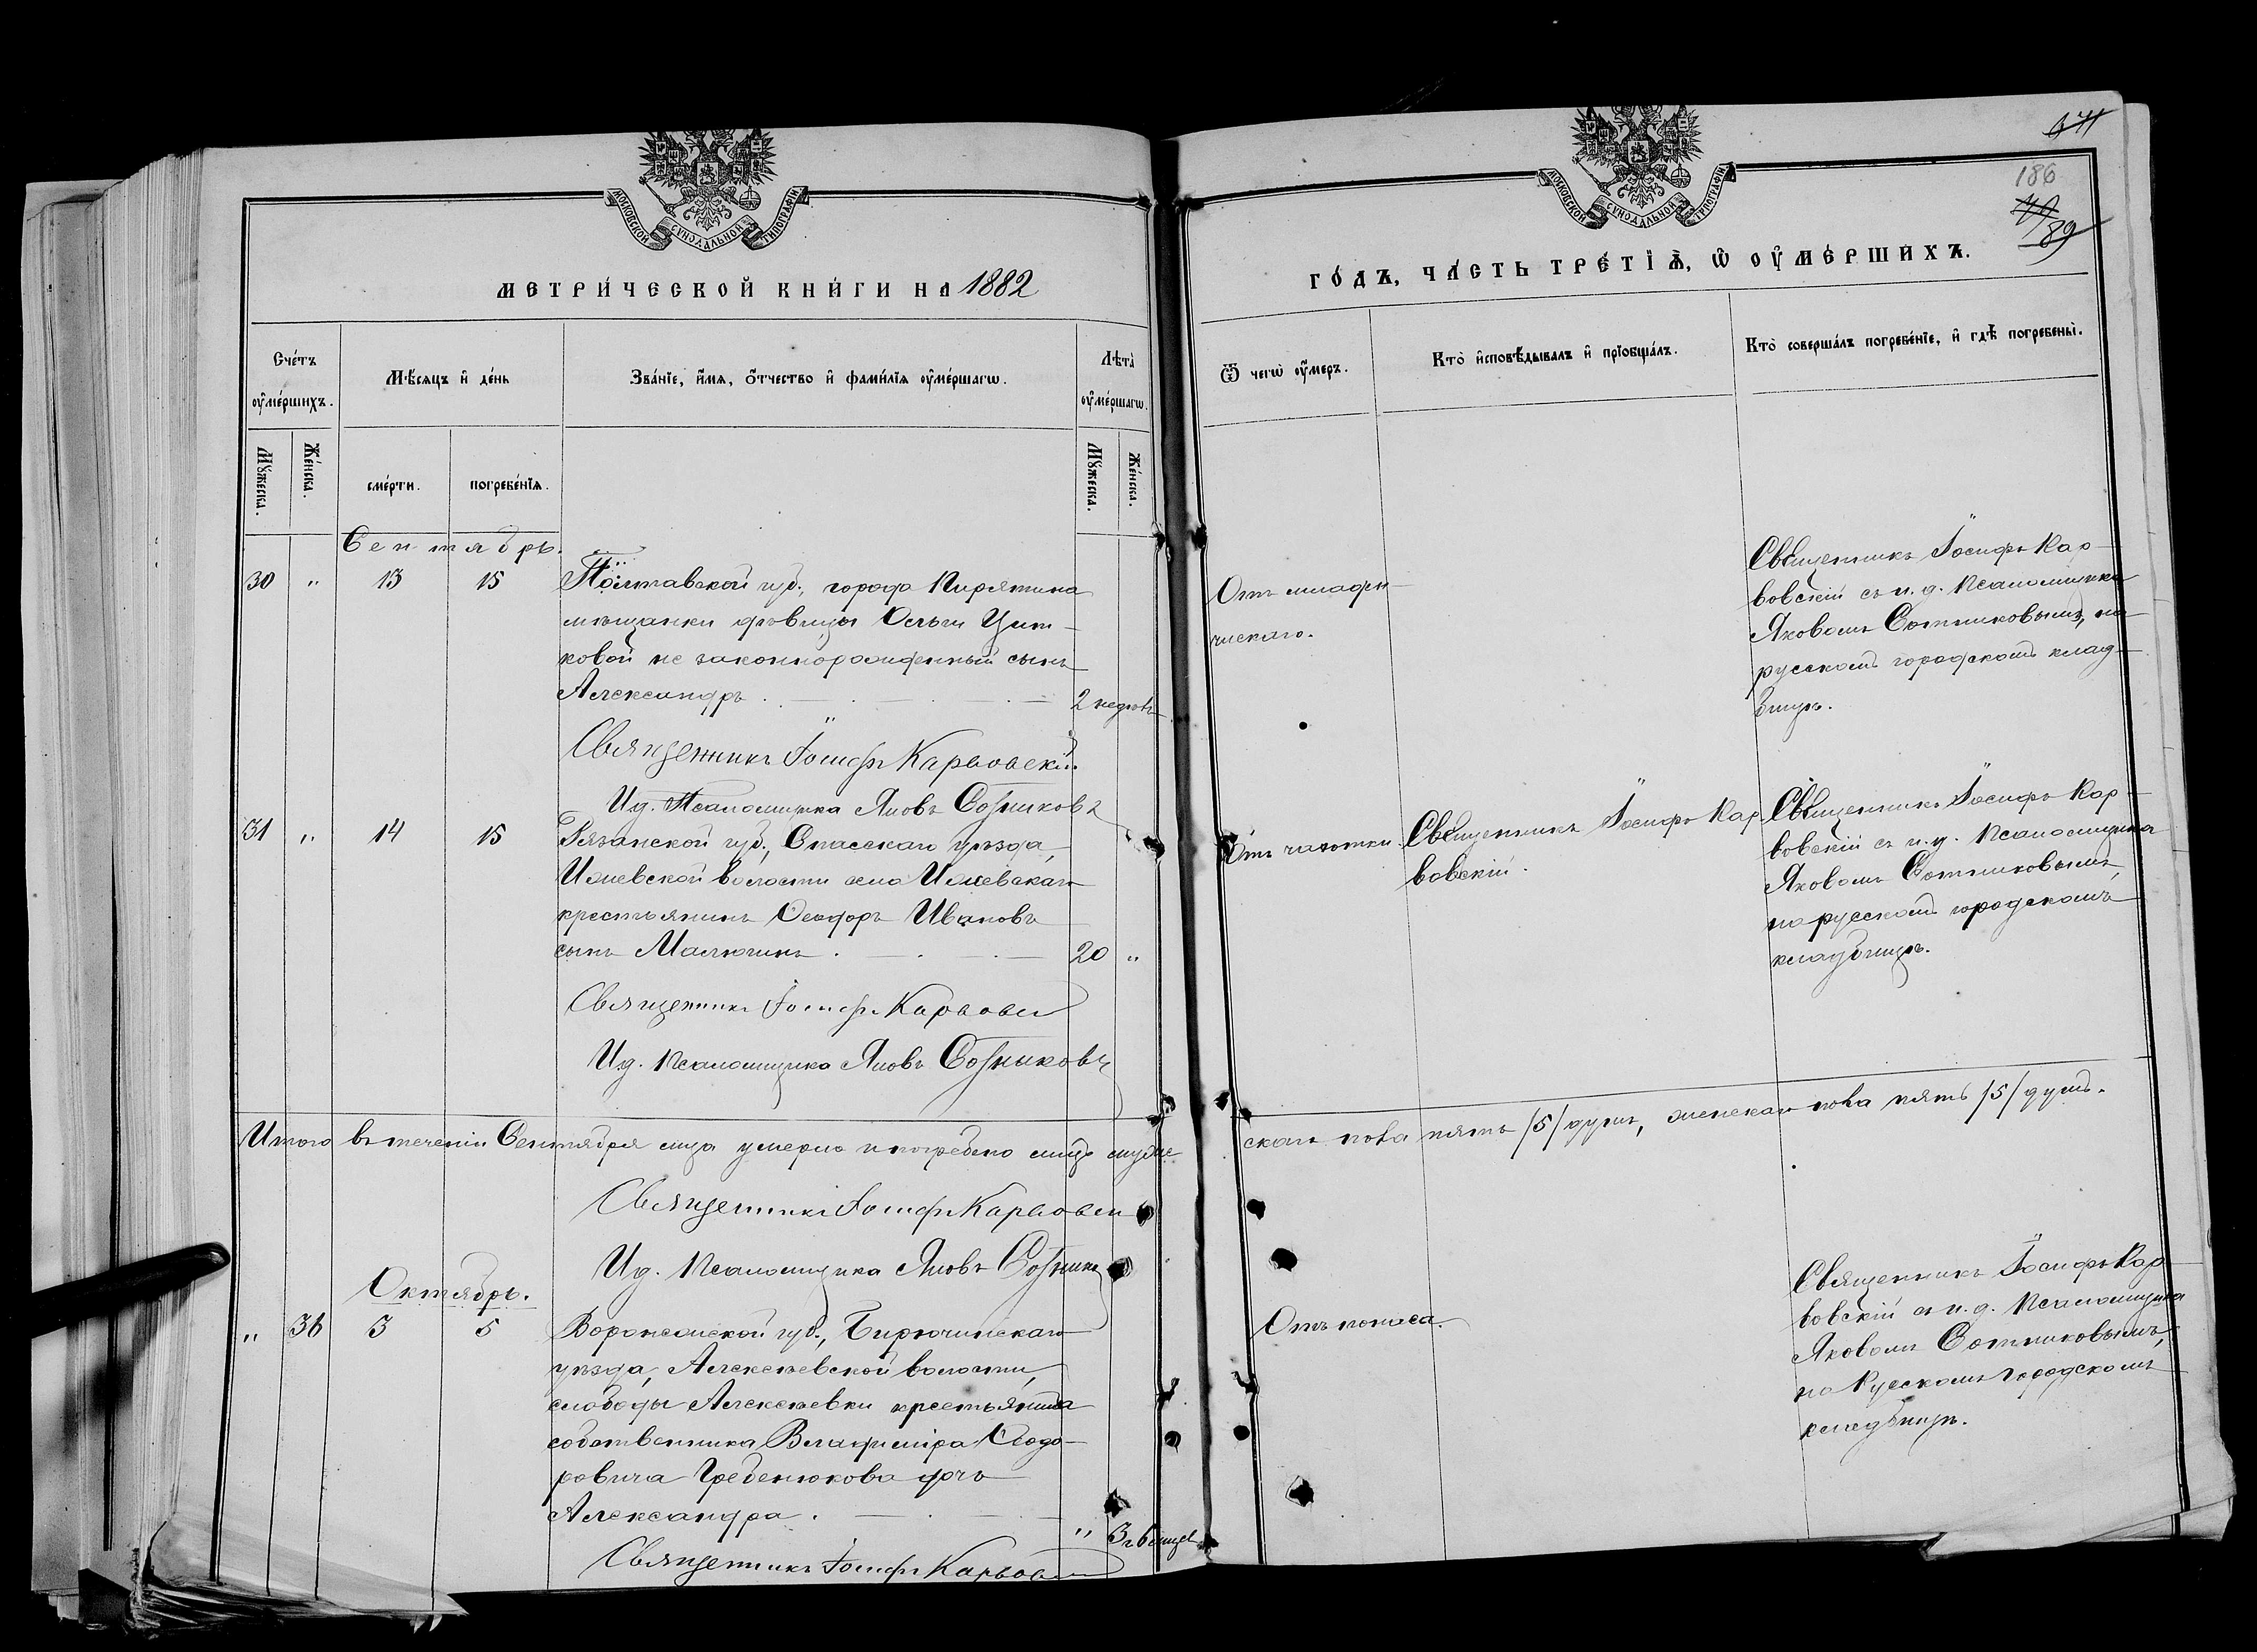 МОСКОВСКОЙ СѴНОДАЛЬНОЙ ТИПОГРАФІИ
МЕТРИ́ЧЕСКОЙ КНИ́ГИ НА 1882
Сче́тъ ᲂу҆ме́ршихъ.
Мѣ́сяцъ и҆ де́нь
Зва́нїе, и҆́мя, ѻ҆́тчество и҆ фами́лїѧ ᲂу҆ме́ршагѡ.
Лѣта̀ ᲂу҆ме́ршагѡ.
Мꙋ́жеска.
Же́нска.
сме́рти.
погребе́нїѧ.
Мꙋ́жеска.
Же́нска.
Сентябрь.
30 " 13 15 Полтавской губ., города Пирятина
мѣщанки дѣвицы Ольги
ковой не законнорожденный сынъ
Александръ . — . — . — 2 недѣль
Священникъ Іосифъ Карвовскій
Ид. Псаломщика Яковъ Сотниковъ
31 " 14 15 Рязанской губ., Спасскаго уѣзда,
Ижевской волости села Ижевскаго
крестьянинъ Ѳеодоръ Ивановъ
сынъ Малюгинъ . — . — 20 "
Священникъ Іосифъ Карвовскі
Ид. Псаломщика Яковъ Сотниковъ
Итого въ теченіи Сентября мца умерло и погребено лицъ муже
Священникъ Іосифъ Карвовскі
Ид. Псаломщика Яковъ Сотников
Октябрь.
" 36 3 5 Воронежской губ., Бирюченскаго
уѣзда, Алексѣевской волости,
слободы Алексѣевки крестьянина
собственника Владиміра Ѳеодо-
ровича Гребенюкова дочь
Александра . — . —
Священникъ Іосифъ Карвовскі
МОСКОВСКОЙ СѴНОДАЛЬНОЙ ТИПОГРАФІИ
186
89
ГО́ДЪ, ЧА́СТЬ ТРЕ́ТЇѦ, Ѡ҆ ОУ҆МЕ́РШИХЪ.
Ѿ чегѡ̀ ᲂу҆́меръ.
Кто̀ и҆сповѣ́дывалъ и҆ прїѡбща́лъ.
Кто̀ соверша́лъ погребе́нїе, и҆ гдѣ̀ погребены̀.
Отъ младен-
ческаго.
Священникъ Іосифъ Кар-
вовскій съ и. д. Псаломщика
Яковомъ Сотниковымъ, на
русскомъ городскомъ клад-
бищѣ.
Отъ чахотки.
Священникъ Іосифъ Кар-
вовскій.
Священникъ Іосифъ Кар-
вовскій съ и. д. Псаломщика
Яковомъ Сотниковымъ,
на русскомъ городскомъ
кладбищѣ.
скаго пола пять /5/ душъ, женскаго пола пять /5/ душъ.
Отъ поноса.
Священникъ Іосифъ Кар-
вовскій съ и. д. Псаломщика
Яковомъ Сотниковымъ,
на Русскомъ городскомъ
кладбищѣ.